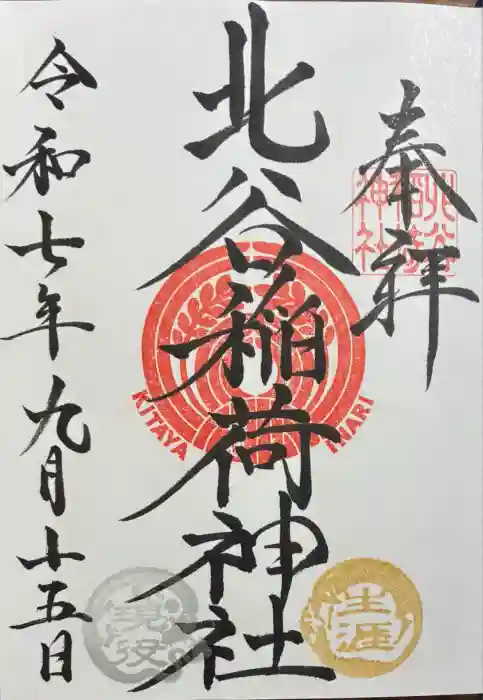 奉拝
北谷稲荷神社
令和七年九月十五日
KITAYA INARI
生涯
現役